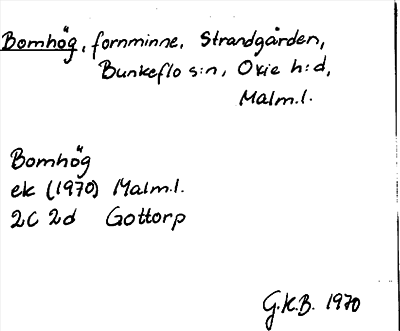 Bomhög, fornminne, Strandgården,
Bunkeflo s:n, Oxie h:d,
Malm.l.
Bomhög
ek (1970) Malm.l.
2C 2d Gottorp
G.K.B. 1970